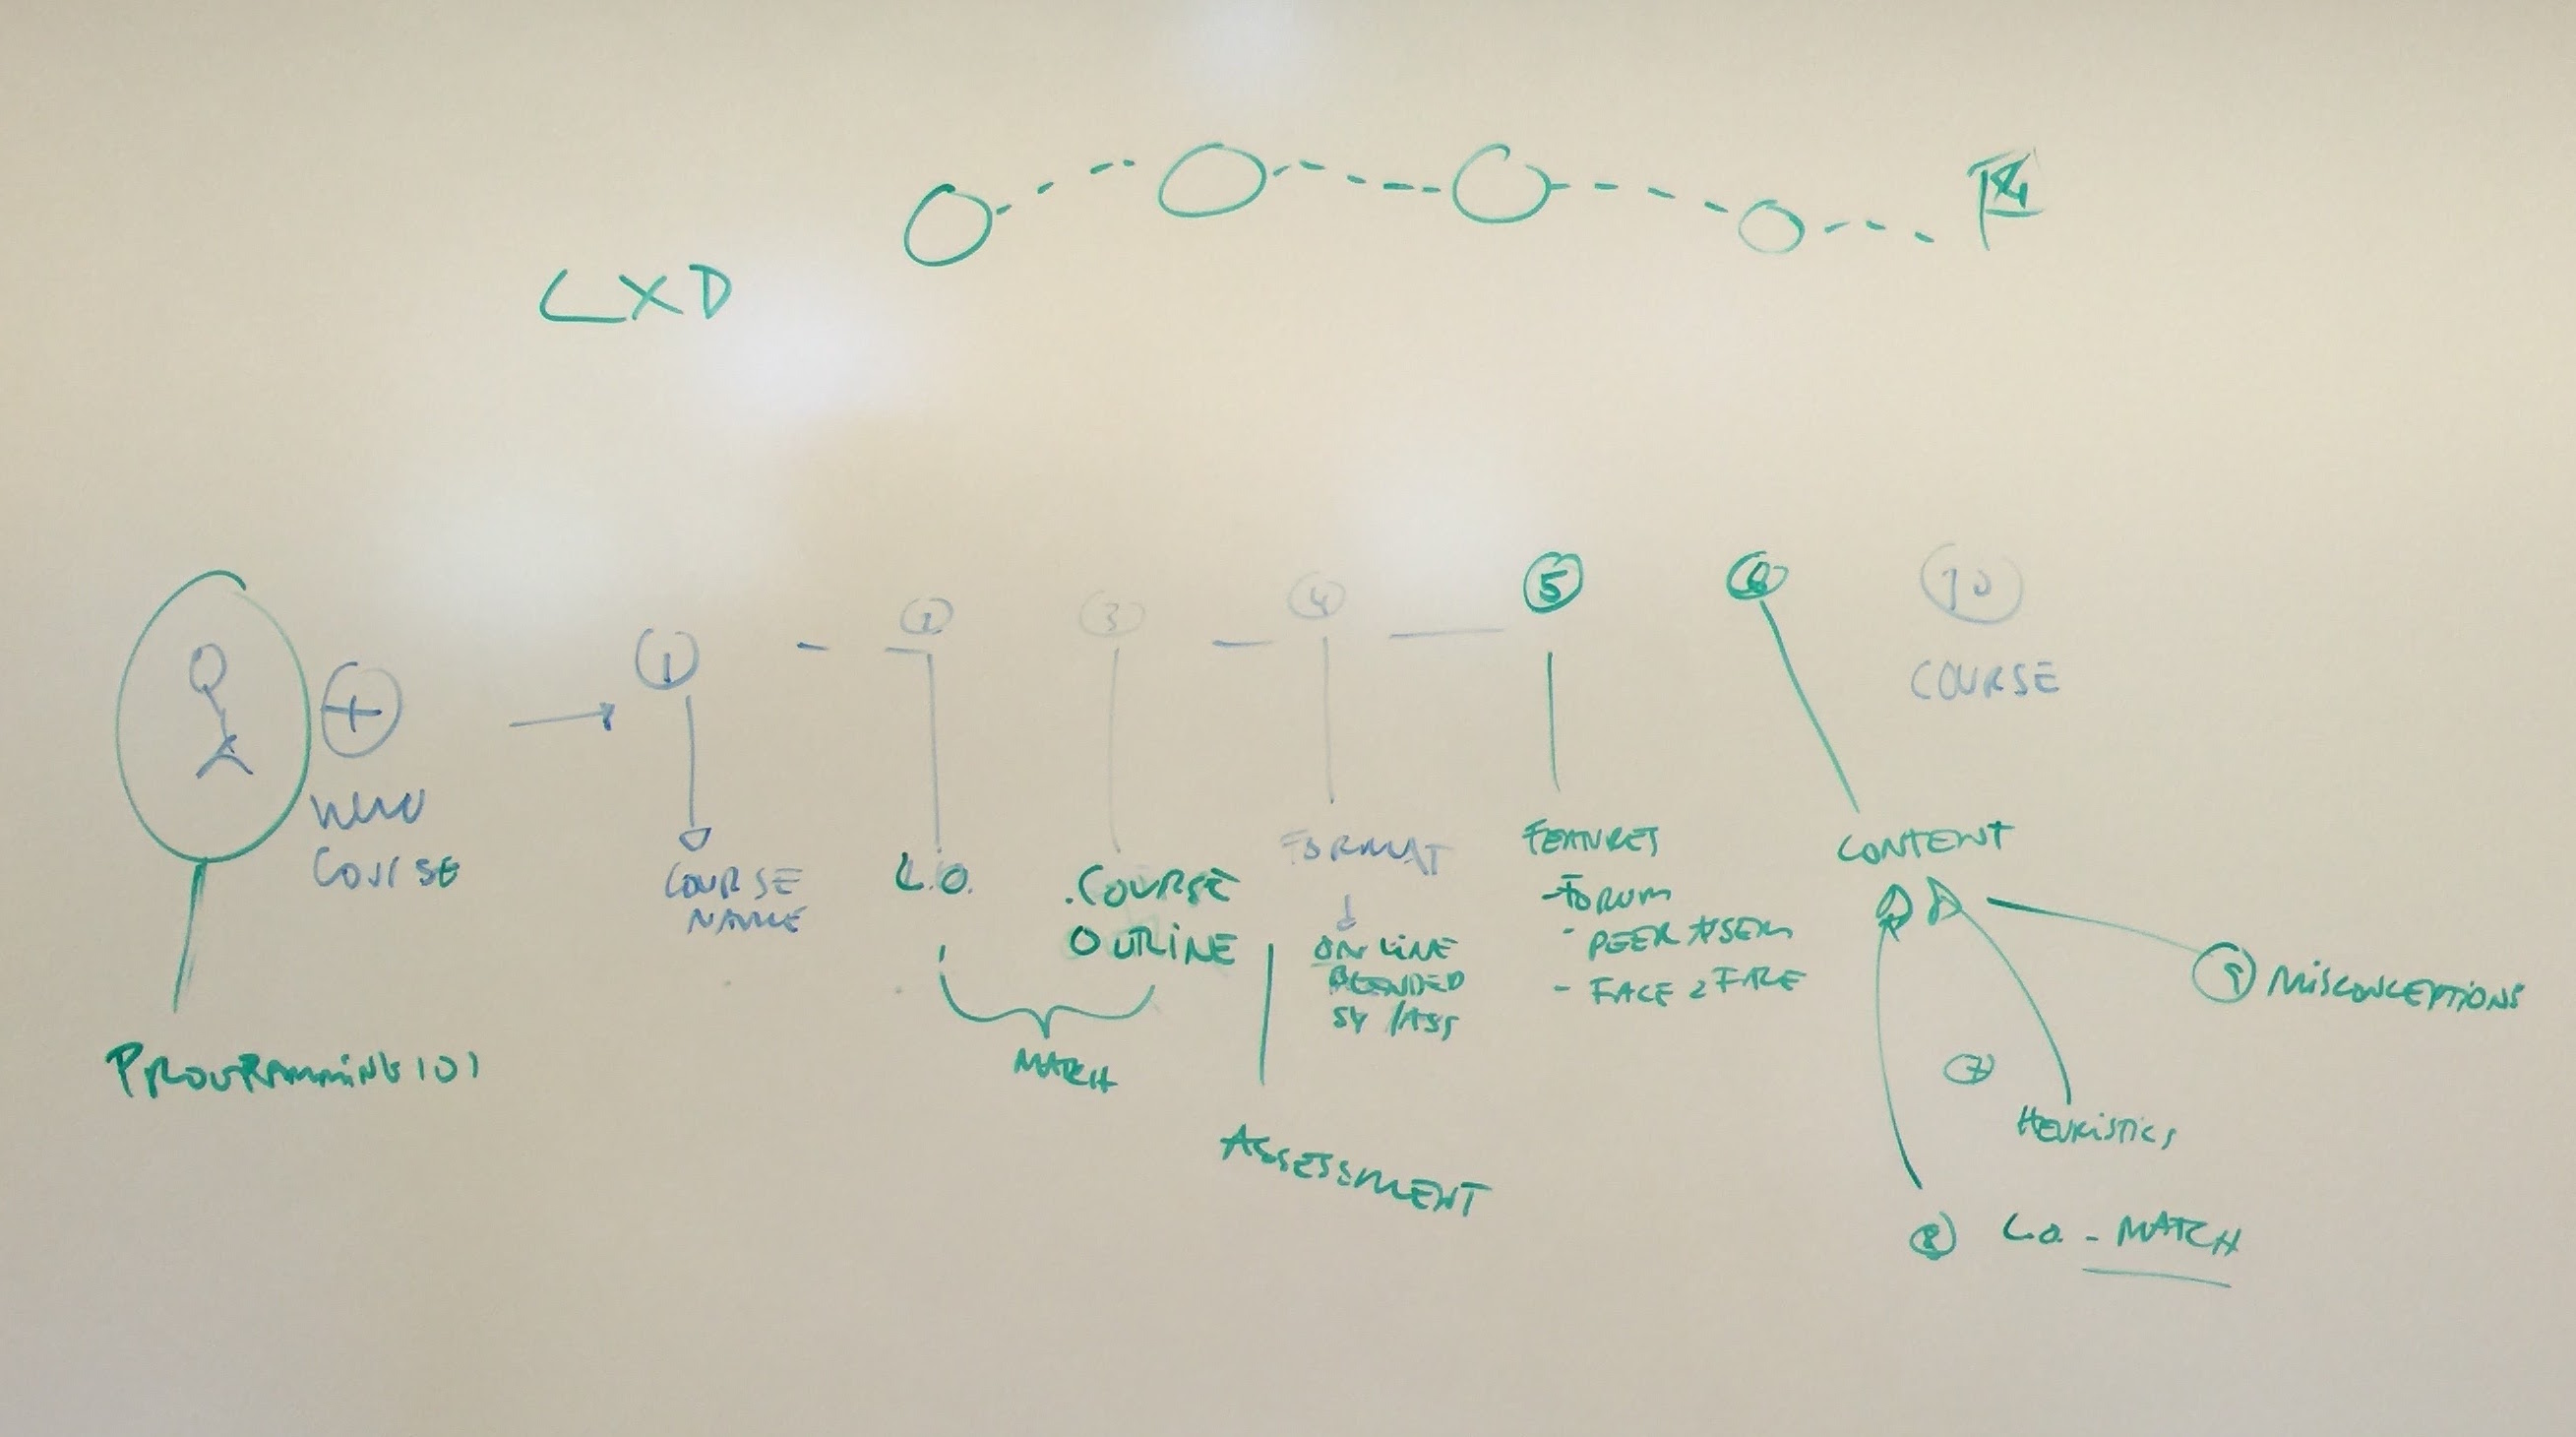 LXD
①
②
③
④
⑤
⑥
⑩
COURSE
+
NEW
COURSE
PROGRAMMING 101
COURSE
NAME
L.O.
.COURSE
OUTLINE
MATCH
ASSESSMENT
FORMAT
ONLINE
BLENDED
SY/ASS
FEATURES
- FORUM
- PEER ASSESS
- FACE 2 FACE
CONTENT
⑨ MISCONCEPTIONS
⑦
HEURISTICS
⑧ L.O. - MATCH